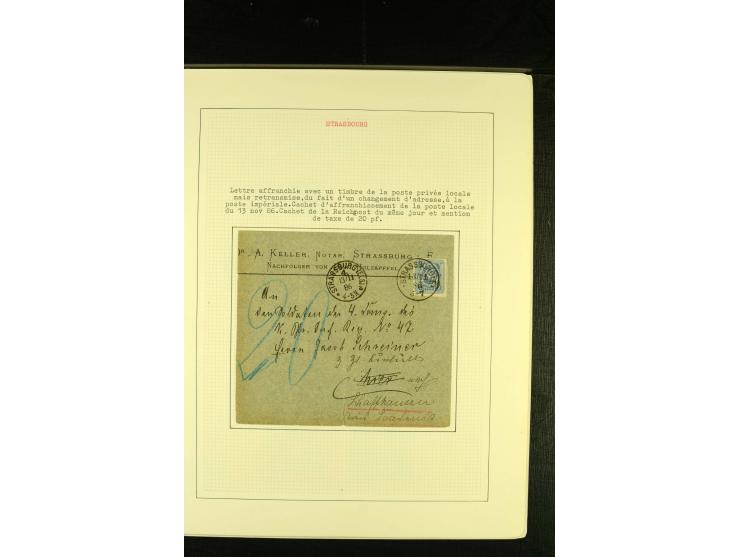 STRASBOURG
Lettre affranchie avec un timbre de la poste privée locale
mais retransmise,du fait d'un changement d'adresse,à la
poste impériale.Cachet d'affranchissement de la poste locale
du 13 nov 86.Cachet de la Reichpost du même jour et mention
de taxe de 20 pf.
A. KELLER, NOTAR, STRASSBURG
NACHFOLGER VON
STRASSBURG
13/11
86
STRASSBURG
86
20
An
den Soldaten der 4. Comp. des
Inf. Reg. No 47
Herrn Jacob Schreiner
Schaffhausen